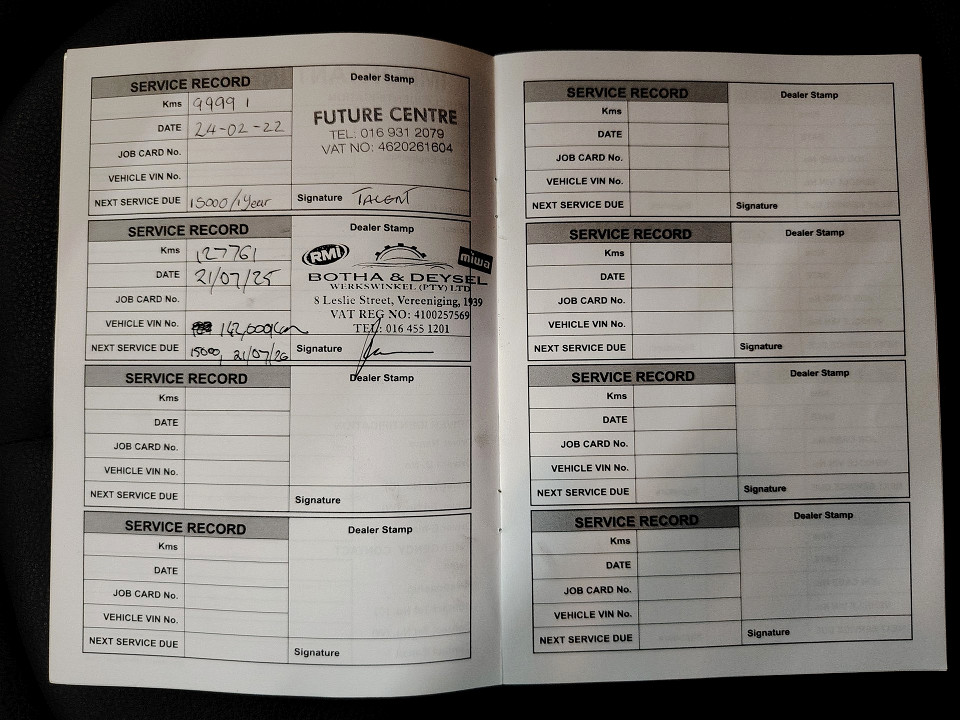 SERVICE RECORD
Dealer Stamp
Kms 99991
DATE 24-02-22
JOB CARD No.
VEHICLE VIN No.
NEXT SERVICE DUE 15000/1Year
FUTURE CENTRE
TEL: 016 931 2079
VAT NO: 4620261604
Signature TALENT
SERVICE RECORD
Dealer Stamp
Kms 127761
DATE 21/07/25
JOB CARD No.
VEHICLE VIN No. 142,000km
NEXT SERVICE DUE 15000, 21/07/26
RMI
miwa
BOTHA & DEYSEL
WERKSWINKEL (PTY) LTD
8 Leslie Street, Vereeniging, 1939
VAT REG NO: 4100257569
TEL: 016 455 1201
Signature
SERVICE RECORD
Dealer Stamp
Kms
DATE
JOB CARD No.
VEHICLE VIN No.
NEXT SERVICE DUE
Signature
SERVICE RECORD
Dealer Stamp
Kms
DATE
JOB CARD No.
VEHICLE VIN No.
NEXT SERVICE DUE
Signature
SERVICE RECORD
Dealer Stamp
Kms
DATE
JOB CARD No.
VEHICLE VIN No.
NEXT SERVICE DUE
Signature
SERVICE RECORD
Dealer Stamp
Kms
DATE
JOB CARD No.
VEHICLE VIN No.
NEXT SERVICE DUE
Signature
SERVICE RECORD
Dealer Stamp
Kms
DATE
JOB CARD No.
VEHICLE VIN No.
NEXT SERVICE DUE
Signature
SERVICE RECORD
Dealer Stamp
Kms
DATE
JOB CARD No.
VEHICLE VIN No.
NEXT SERVICE DUE
Signature